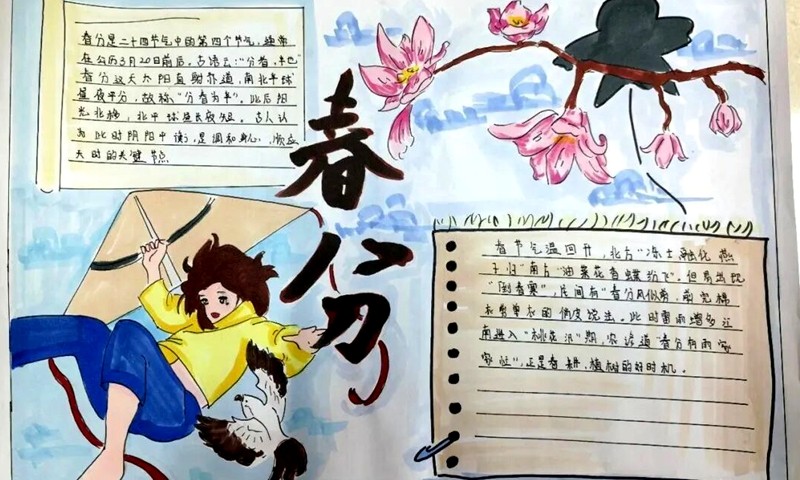 春分是二十四节气中的第四个节气，通常
在公历3月20日前后。古语云："分者，半也"
春分这天太阳直射赤道，南北半球
昼夜平分，故称"分者为半"。此后阳
光北移，北半球昼长夜短。古人认
为此时阴阳平衡，是调和身心，顺应
天时的关键节点
春
分
春节气温回升，北方"冻土融化 燕
子归"南方"油菜花香蝶纷飞"。但易出现
"倒春寒"，民间有"春分风似剪，前
的俏皮说法。此时雷雨增多江
南进入"桃花汛"期，农谚道"春分有雨家
家忙"，正是春耕、植树的好时机。